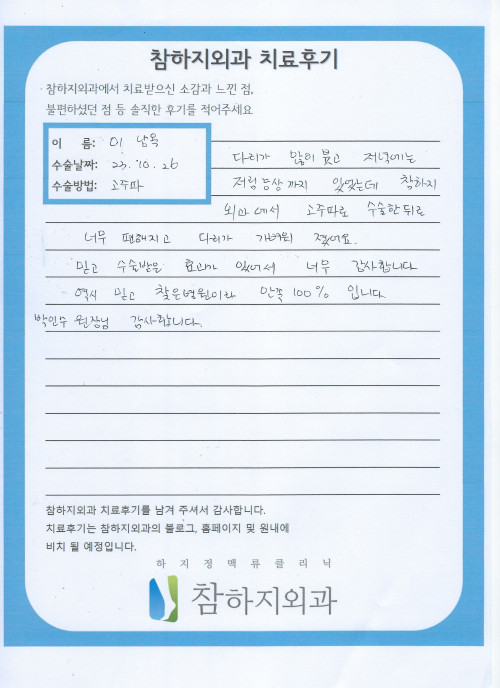 참하지외과 치료후기
참하지외과에서 치료받으신 소감과 느낀 점,
불편하셨던 점 등 솔직한 후기를 적어주세요
이 름: 이 남옥
수술날짜: 23. 10. 26
수술방법: 고주파
다리가 많이 붓고 저녁에는
저림증상 까지 있었는데 참하지
외과 에서 고주파로 수술한 뒤로
너무 편해지고 다리가 가벼워 졌어요.
믿고 수술받은 효과가 있어서 너무 감사합니다
역시 믿고 찾은병원이라 만족 100% 입니다.
박인수 원장님 감사합니다.
참하지외과 치료후기를 남겨 주셔서 감사합니다.
치료후기는 참하지외과의 블로그, 홈페이지 및 원내에
비치 될 예정입니다.
하지정맥류클리닉
참하지외과